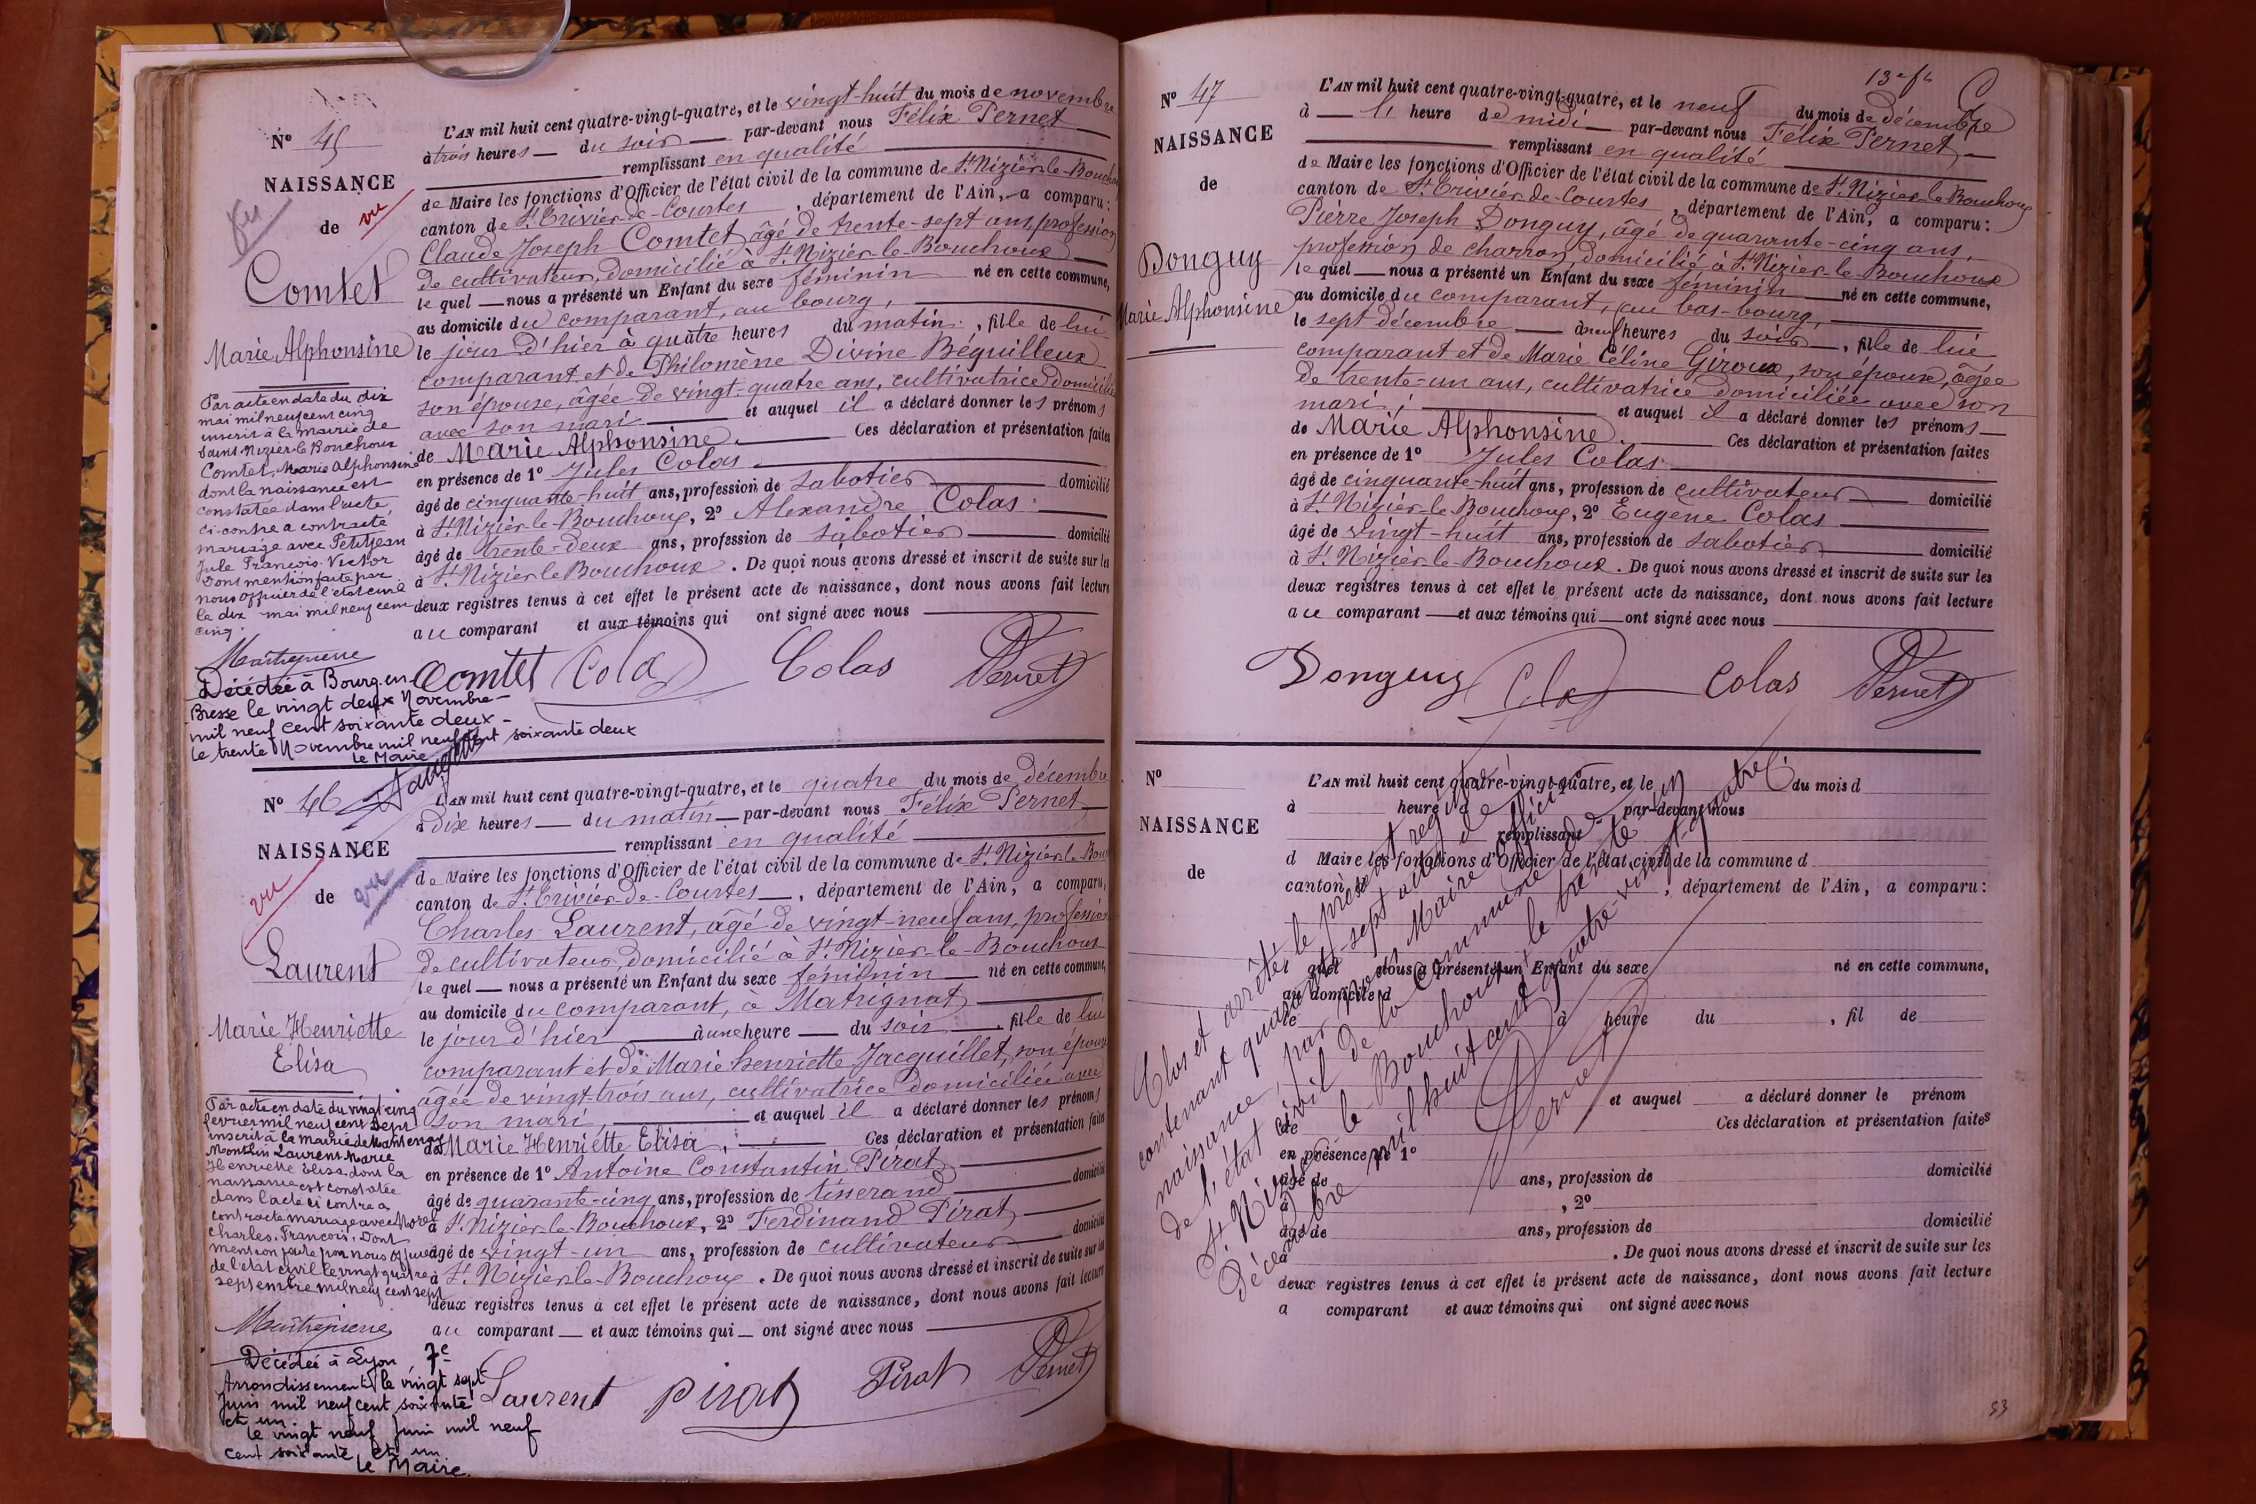 N° 45
NAISSANCE
de
vu
vu
Comtet
Marie Alphonsine
Par acte en date du dix
mai mil neuf cent cinq
inscrit à la mairie de
Saint Nizier-le Bouchoux
Comtet, Marie Alphonsine
dont la naissance est
constatée dans l'acte
ci-contre a contracté
mariage avec Petitjean
Jule François-Victor
Dont mention faite par
nous officier de l'état civil
le dix mai mil neuf cent
cinq.
Décédée à Bourg-en-
Bresse le vingt deux Novembre
mil neuf cent soixante deux
le trente Novembre mil neuf cent soixante deux
le Maire
L'AN mil huit cent quatre-vingt-quatre, et le vingt-huit du mois de novembre
à trois heures du soir par-devant nous Félix Pernet
remplissant en qualité
de Maire les fonctions d'Officier de l'état civil de la commune de St Nizier-le-Bouchoux
canton de St Trivier-de-Courtes, département de l'Ain, a comparu:
Claude Joseph Comtet, âgé de trente-sept ans, profession
de cultivateur, domicilié à St Nizier-le-Bouchoux
lequel nous a présenté un Enfant du sexe féminin né en cette commune,
au domicile du comparant, au bourg,
le jour d'hier à quatre heures du matin, fille de lui
comparant et de Philomène Divine Béguilleux
son épouse, âgée de vingt-quatre ans, cultivatrice domiciliée
avec son mari et auquel il a déclaré donner les prénoms
de Marie Alphonsine. Ces déclaration et présentation faites
en présence de 1° Jules Colas
âgé de cinquante-huit ans, profession de sabotier domicilié
à St Nizier-le-Bouchoux, 2° Alexandre Colas
âgé de trente-deux ans, profession de sabotier domicilié
à St Nizier le Bouchoux. De quoi nous avons dressé et inscrit de suite sur les
deux registres tenus à cet effet le présent acte de naissance, dont nous avons fait lecture
au comparant et aux témoins qui ont signé avec nous
Comtet Colas Colas Pernet
N° 46
NAISSANCE
de
vu
vu
Laurent
Marie Henriette
Elisa
Par acte en date du vingt cinq
fevrier mil neuf cent sept
inscrit à la mairie de Mantenay
Montlin Laurent Marie
Henriette Elisa dont la
naissance est constatée
dans l'acte ci contre a
contracté mariage avec Morel
Charles, François. Dont
mention faite par nous officier
de l'état civil le vingt quatre
septembre mil neuf cent sept
Décédée à Lyon 7e
Arrondissement le vingt sept
Juin mil neuf cent soixante
et un.
le vingt neuf Juin mil neuf
cent soixante et un
le Maire.
L'AN mil huit cent quatre-vingt-quatre, et le quatre du mois de décembre
à dix heures du matin par-devant nous Félix Pernet
remplissant en qualité
de Maire les fonctions d'Officier de l'état civil de la commune de St Nizier-le-Bouc
canton de St Trivier-de-Courtes, département de l'Ain, a comparu,
Charles Laurent, âgé de vingt-neuf ans, profession
de cultivateur domicilié à St Nizier-le-Bouchoux
lequel nous a présenté un Enfant du sexe féminin né en cette commune,
au domicile du comparant, à Matrignat
le jour d'hier à une heure du soir, fille de lui
comparant et de Marie henriette Jacquillet, son épouse
âgée de vingt-trois ans, cultivatrice domiciliée avec
son mari, et auquel il a déclaré donner les prénoms
de Marie Henriette Elisa, Ces déclaration et présentation faites
en présence de 1° Antoine Constantin Pirat
âgé de quarante-cinq ans, profession de tisserand domicilié
à St Nizier-le-Bouchoux, 2° Ferdinand Pirat
âgé de vingt-un ans, profession de cultivateur domicilié
à St Nizier-le-Bouchoux. De quoi nous avons dressé et inscrit de suite sur les
deux registres tenus à cet effet le présent acte de naissance, dont nous avons fait lecture
au comparant et aux témoins qui ont signé avec nous
Laurent Pirat Pirat Pernet
N° 47
NAISSANCE
de
Donguy
Marie Alphonsine
L'AN mil huit cent quatre-vingt-quatre, et le neuf du mois de décembre
à heure de midi par-devant nous Félix Pernet
remplissant en qualité
de Maire les fonctions d'Officier de l'état civil de la commune de St Nizier-le Bouchoux
canton de St Trivier-de-Courtes, département de l'Ain, a comparu:
Pierre Joseph Donguy, âgé de quarante-cinq ans,
profession de charron, domicilié à St Nizier-le-Bouchoux
lequel nous a présenté un Enfant du sexe féminin né en cette commune,
au domicile du comparant, au bas-bourg,
le sept décembre à neuf heures du soir, fille de lui
comparant et de Marie Céline Giroux, son épouse, âgée
de trente-un ans, cultivatrice domiciliée avec son
mari, et auquel il a déclaré donner les prénoms
de Marie Alphonsine. Ces déclaration et présentation faites
en présence de 1° Jules Colas
âgé de cinquante-huit ans, profession de cultivateur domicilié
à St Nizier-le Bouchoux, 2° Eugène Colas
âgé de vingt-huit ans, profession de sabotier domicilié
à St Nizier-le Bouchoux. De quoi nous avons dressé et inscrit de suite sur les
deux registres tenus à cet effet le présent acte de naissance, dont nous avons fait lecture
au comparant et aux témoins qui ont signé avec nous
Donguy Colas Colas Pernet
N°
NAISSANCE
de
L'AN mil huit cent quatre-vingt-quatre, et le du mois d
à heure d par-devant nous
remplissant
d Maire les fonctions d'Officier de l'état civil de la commune d
canton d, département de l'Ain, a comparu:
quel nous a présenté un Enfant du sexe né en cette commune,
au domicile d
le à heure du, fil de
et auquel a déclaré donner le prénom
de Ces déclaration et présentation faites
en présence de 1°
âgé de ans, profession de domicilié
à, 2°
âgé de ans, profession de domicilié
à. De quoi nous avons dressé et inscrit de suite sur les
deux registres tenus à cet effet le présent acte de naissance, dont nous avons fait lecture
a comparant et aux témoins qui ont signé avec nous
Clos et arrêté le présent registre
contenant quarante-sept actes de
naissance, par nous Maire officier
de l'état civil de la commune de
St Nizier-le-Bouchoux, le trente un
Décembre mil huit cent quatre-vingt-quatre
Pernet
53